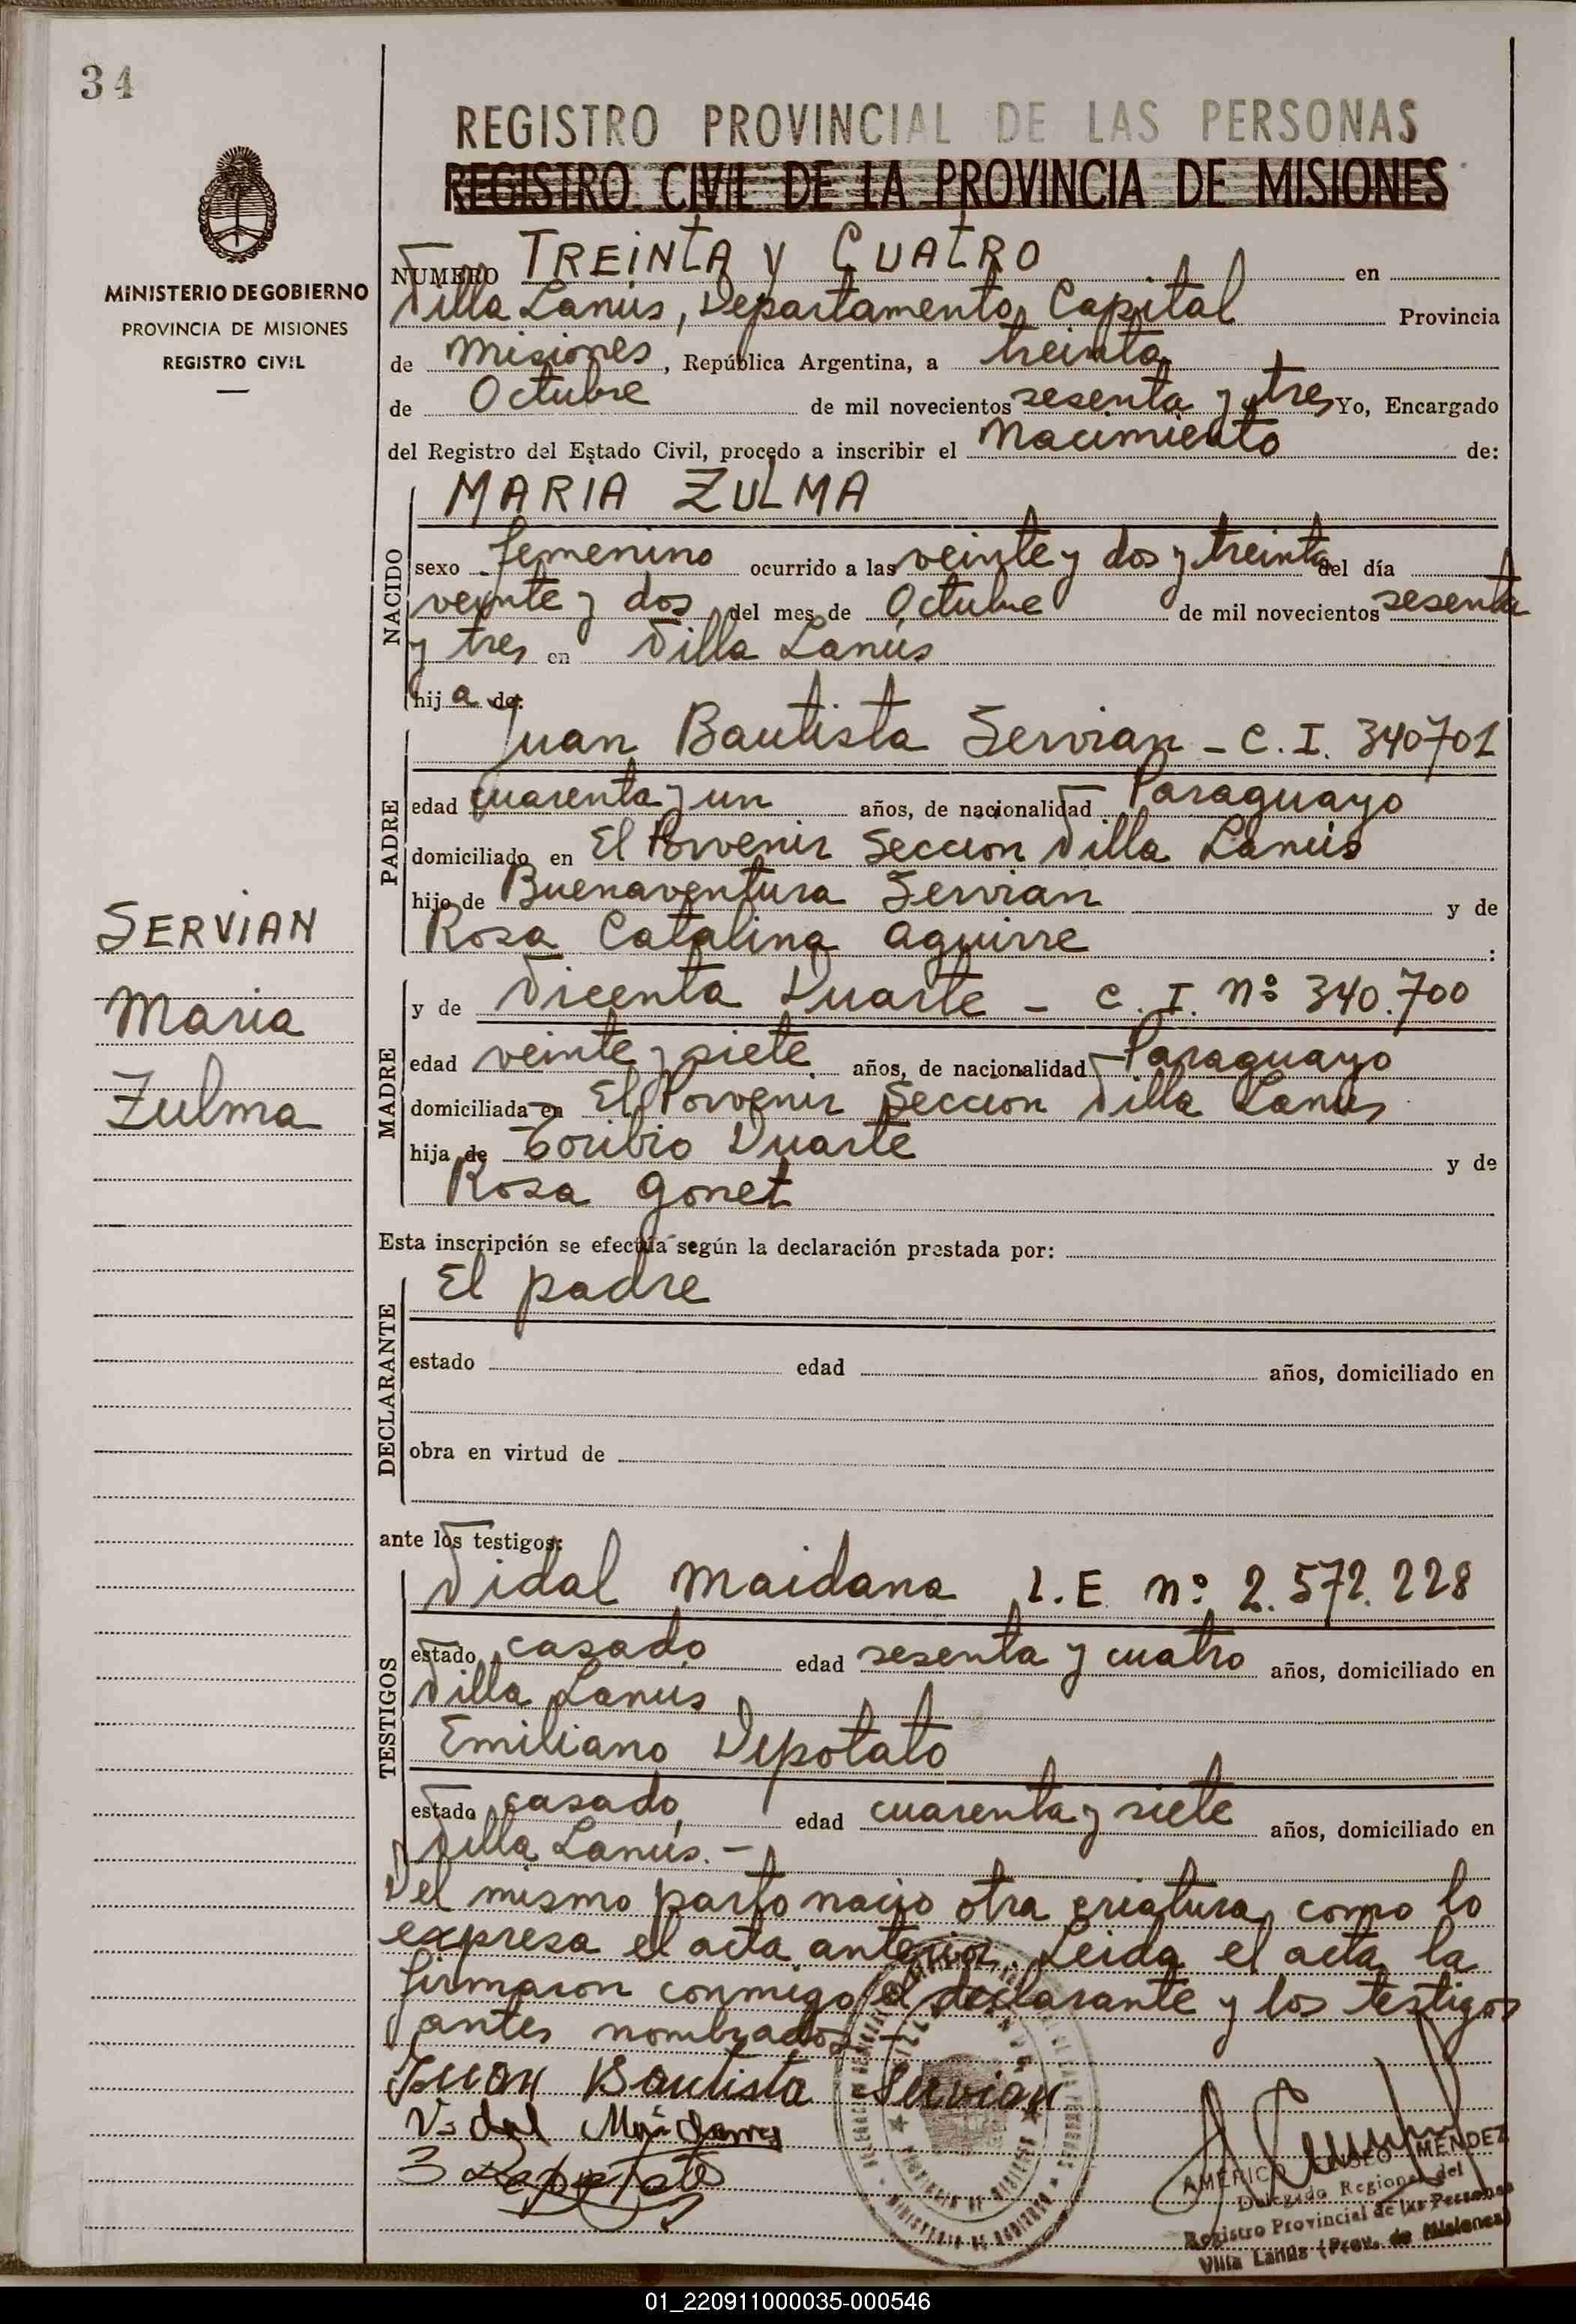 34
REGISTRO PROVINCIAL DE LAS PERSONAS
REGISTRO CIVIL DE LA PROVINCIA DE MISIONES
MINISTERIO DE GOBIERNO
PROVINCIA DE MISIONES
REGISTRO CIVIL
NUMERO TREINTA Y CUATRO en
Villa Lanús, Departamento Capital Provincia
de Misiones, República Argentina, a treinta
de Octubre de mil novecientos sesenta y tres Yo, Encargado
del Registro del Estado Civil, procedo a inscribir el Nacimiento de:
NACIDO
MARIA ZULMA
sexo femenino ocurrido a las veinte y dos y treinta del día
veinte y dos del mes de Octubre de mil novecientos sesenta
y tres en Villa Lanús
hij a de:
PADRE
Juan Bautista Servian - C. I. 340701
edad cuarenta y un años, de nacionalidad Paraguayo
domiciliado en El Porvenir Seccion Villa Lanús
hijo de Buenaventura Servian y de
Rosa Catalina Aguirre :
SERVIAN
Maria
Zulma
MADRE
y de Vicenta Duarte - C. I. Nº 340.700
edad veinte y siete años, de nacionalidad Paraguayo
domiciliada en El Porvenir Seccion Villa Lanus
hija de Toribio Duarte y de
Rosa Gonet
Esta inscripción se efectúa según la declaración prestada por:
DECLARANTE
El padre
estado edad años, domiciliado en
obra en virtud de
ante los testigos:
TESTIGOS
Vidal Maidana L.E Nº 2.572.228
estado casado edad sesenta y cuatro años, domiciliado en
Villa Lanus
Emiliano Depotato
estado casado edad cuarenta y siete años, domiciliado en
Villa Lanús.-
Del mismo parto nacio otra criatura, como lo
expresa el acta anterior. Leida el acta, la
firmaron conmigo el declarante y los testigos
antes nombrados
Juan Bautista Servian
Vidal Maidana
AMERICO MENDEZ
Delegado Regional del
Registro Provincial de las Personas
Villa Lanús (Prov. de Misiones)
01_220911000035-000546